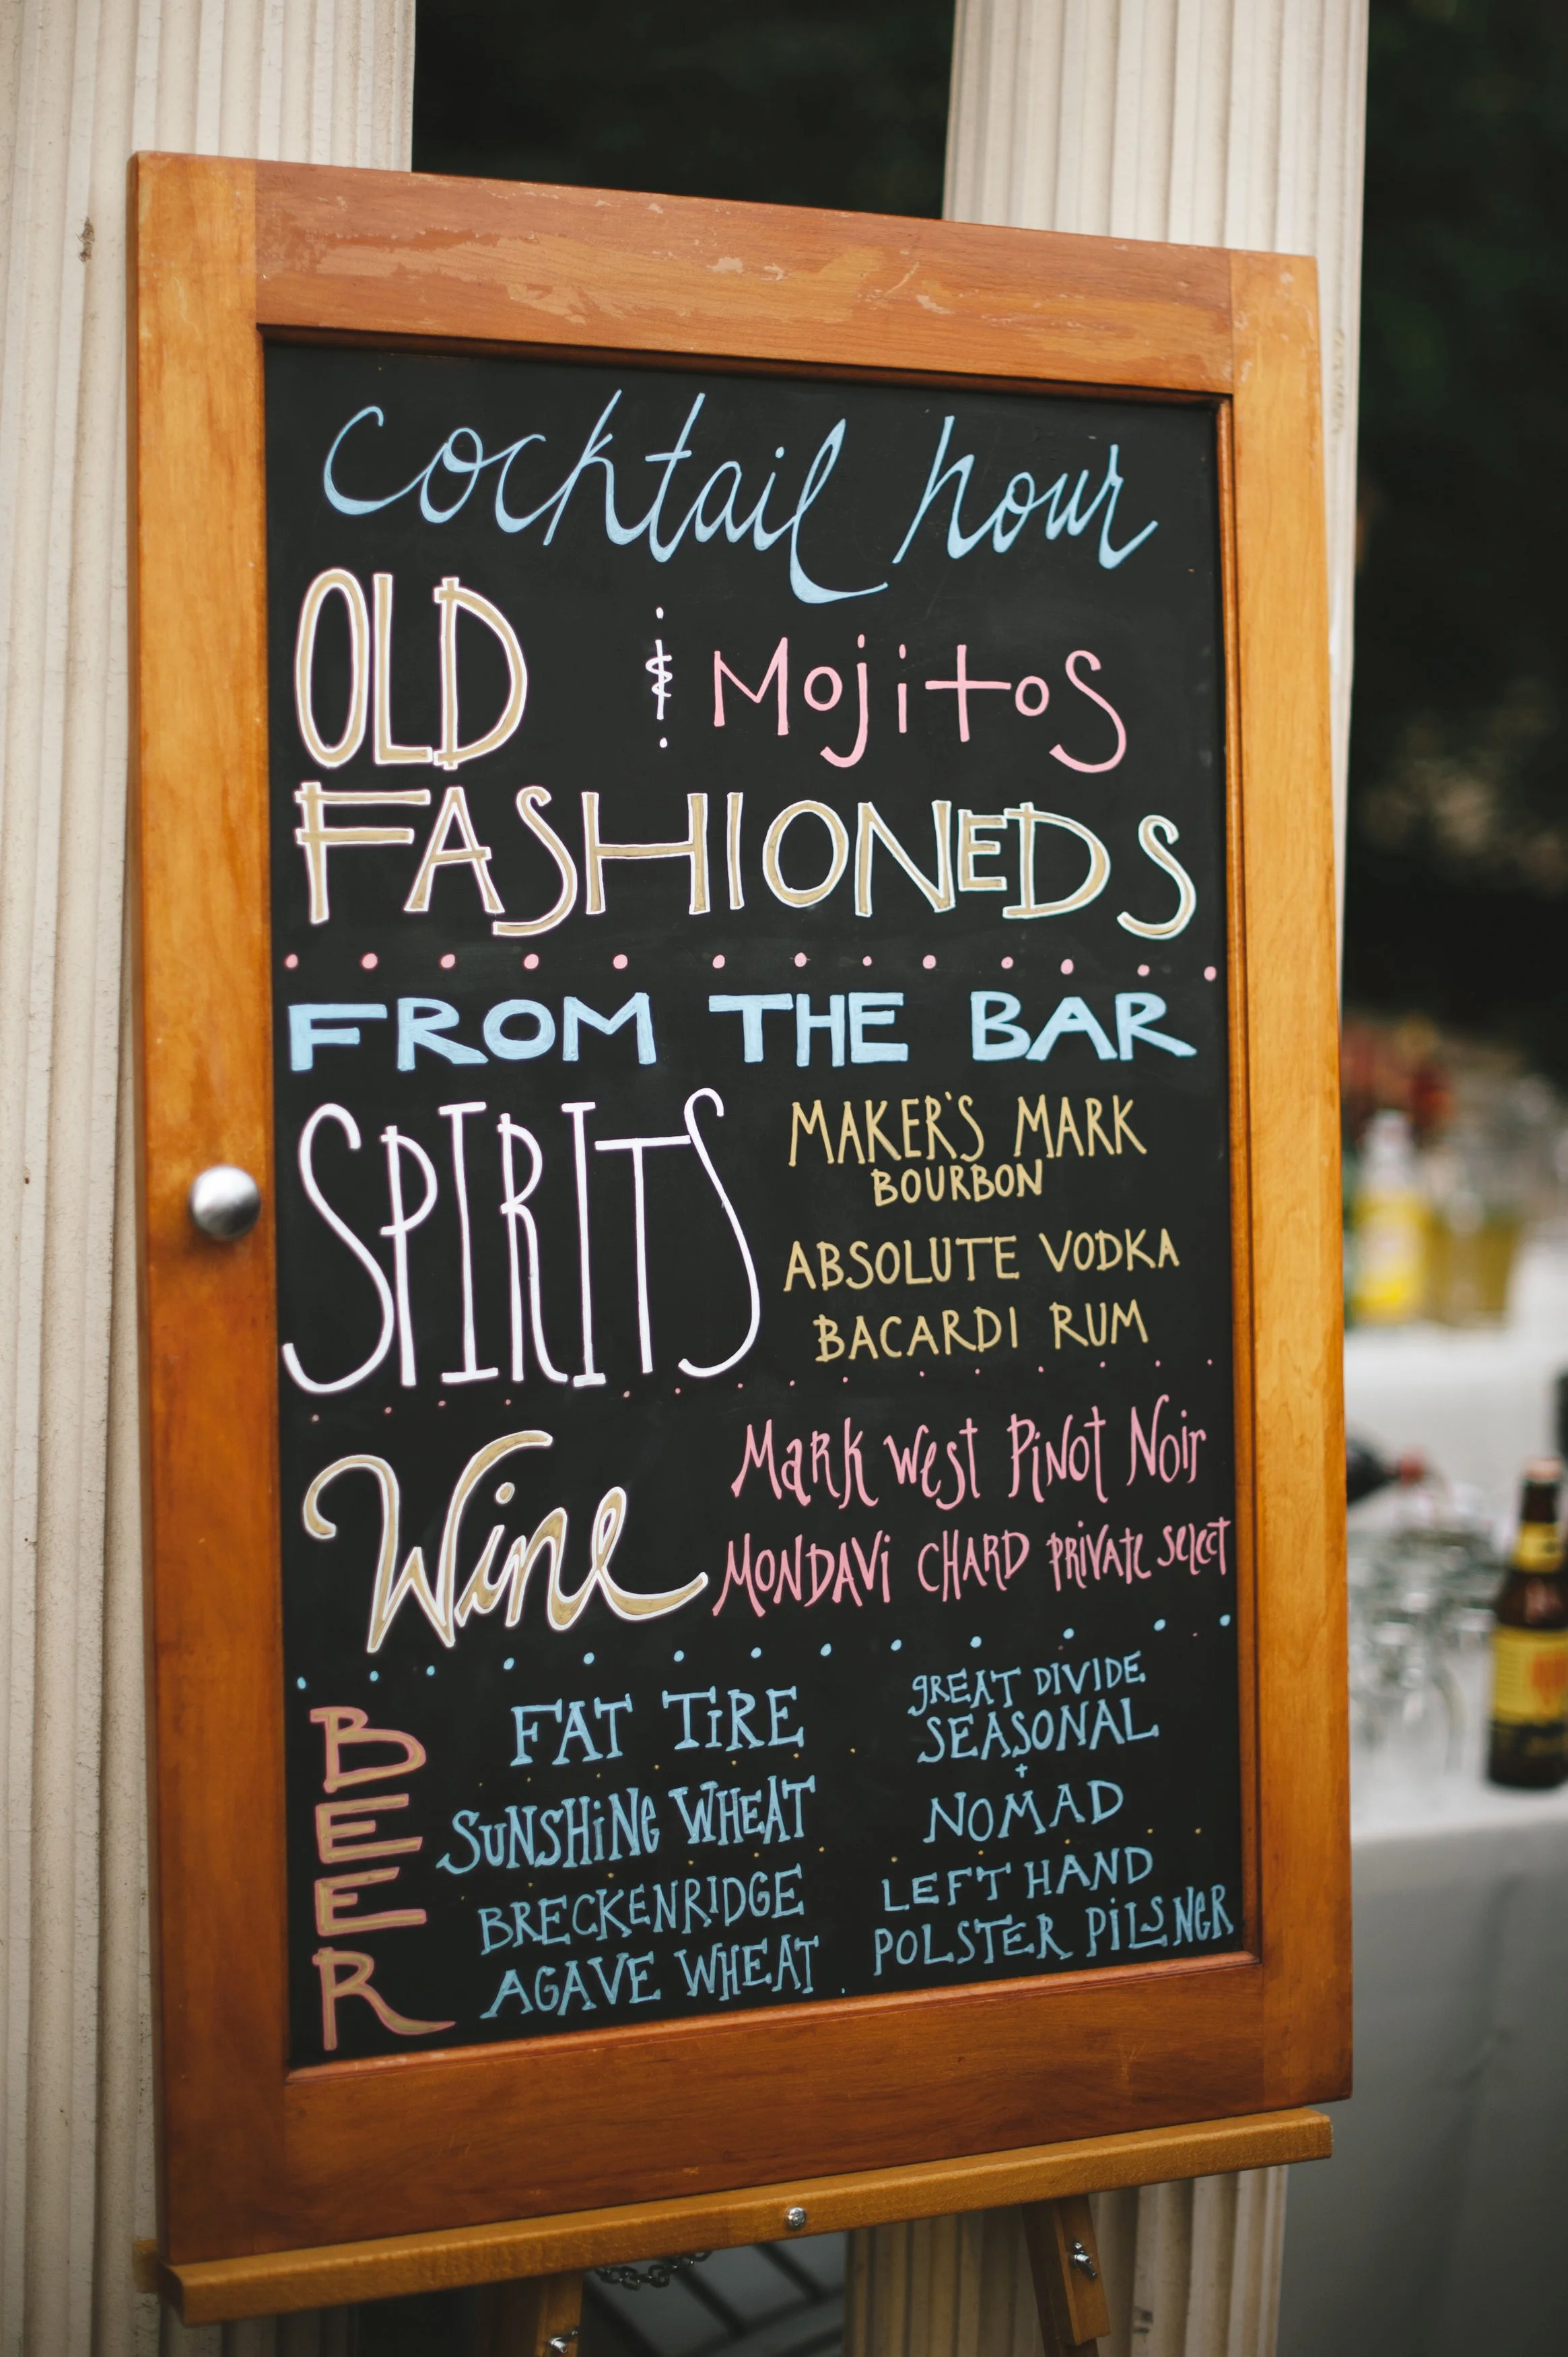 cocktail hour
OLD & Mojitos
FASHIONEDS
FROM THE BAR
SPIRITS
MAKER'S MARK
BOURBON
ABSOLUTE VODKA
BACARDI RUM
Wine
Mark West Pinot Noir
MONDAVi CHARD PRiVATE SElECT
BEER
FAT TiRE
SUNSHiNe WHEAT
BRECKENRIDGE
AGAVE WHEAT
gREAT DIVIDE
SEASONAL
+
NOMAD
LEFT HAND
POLSTER PiLSNER